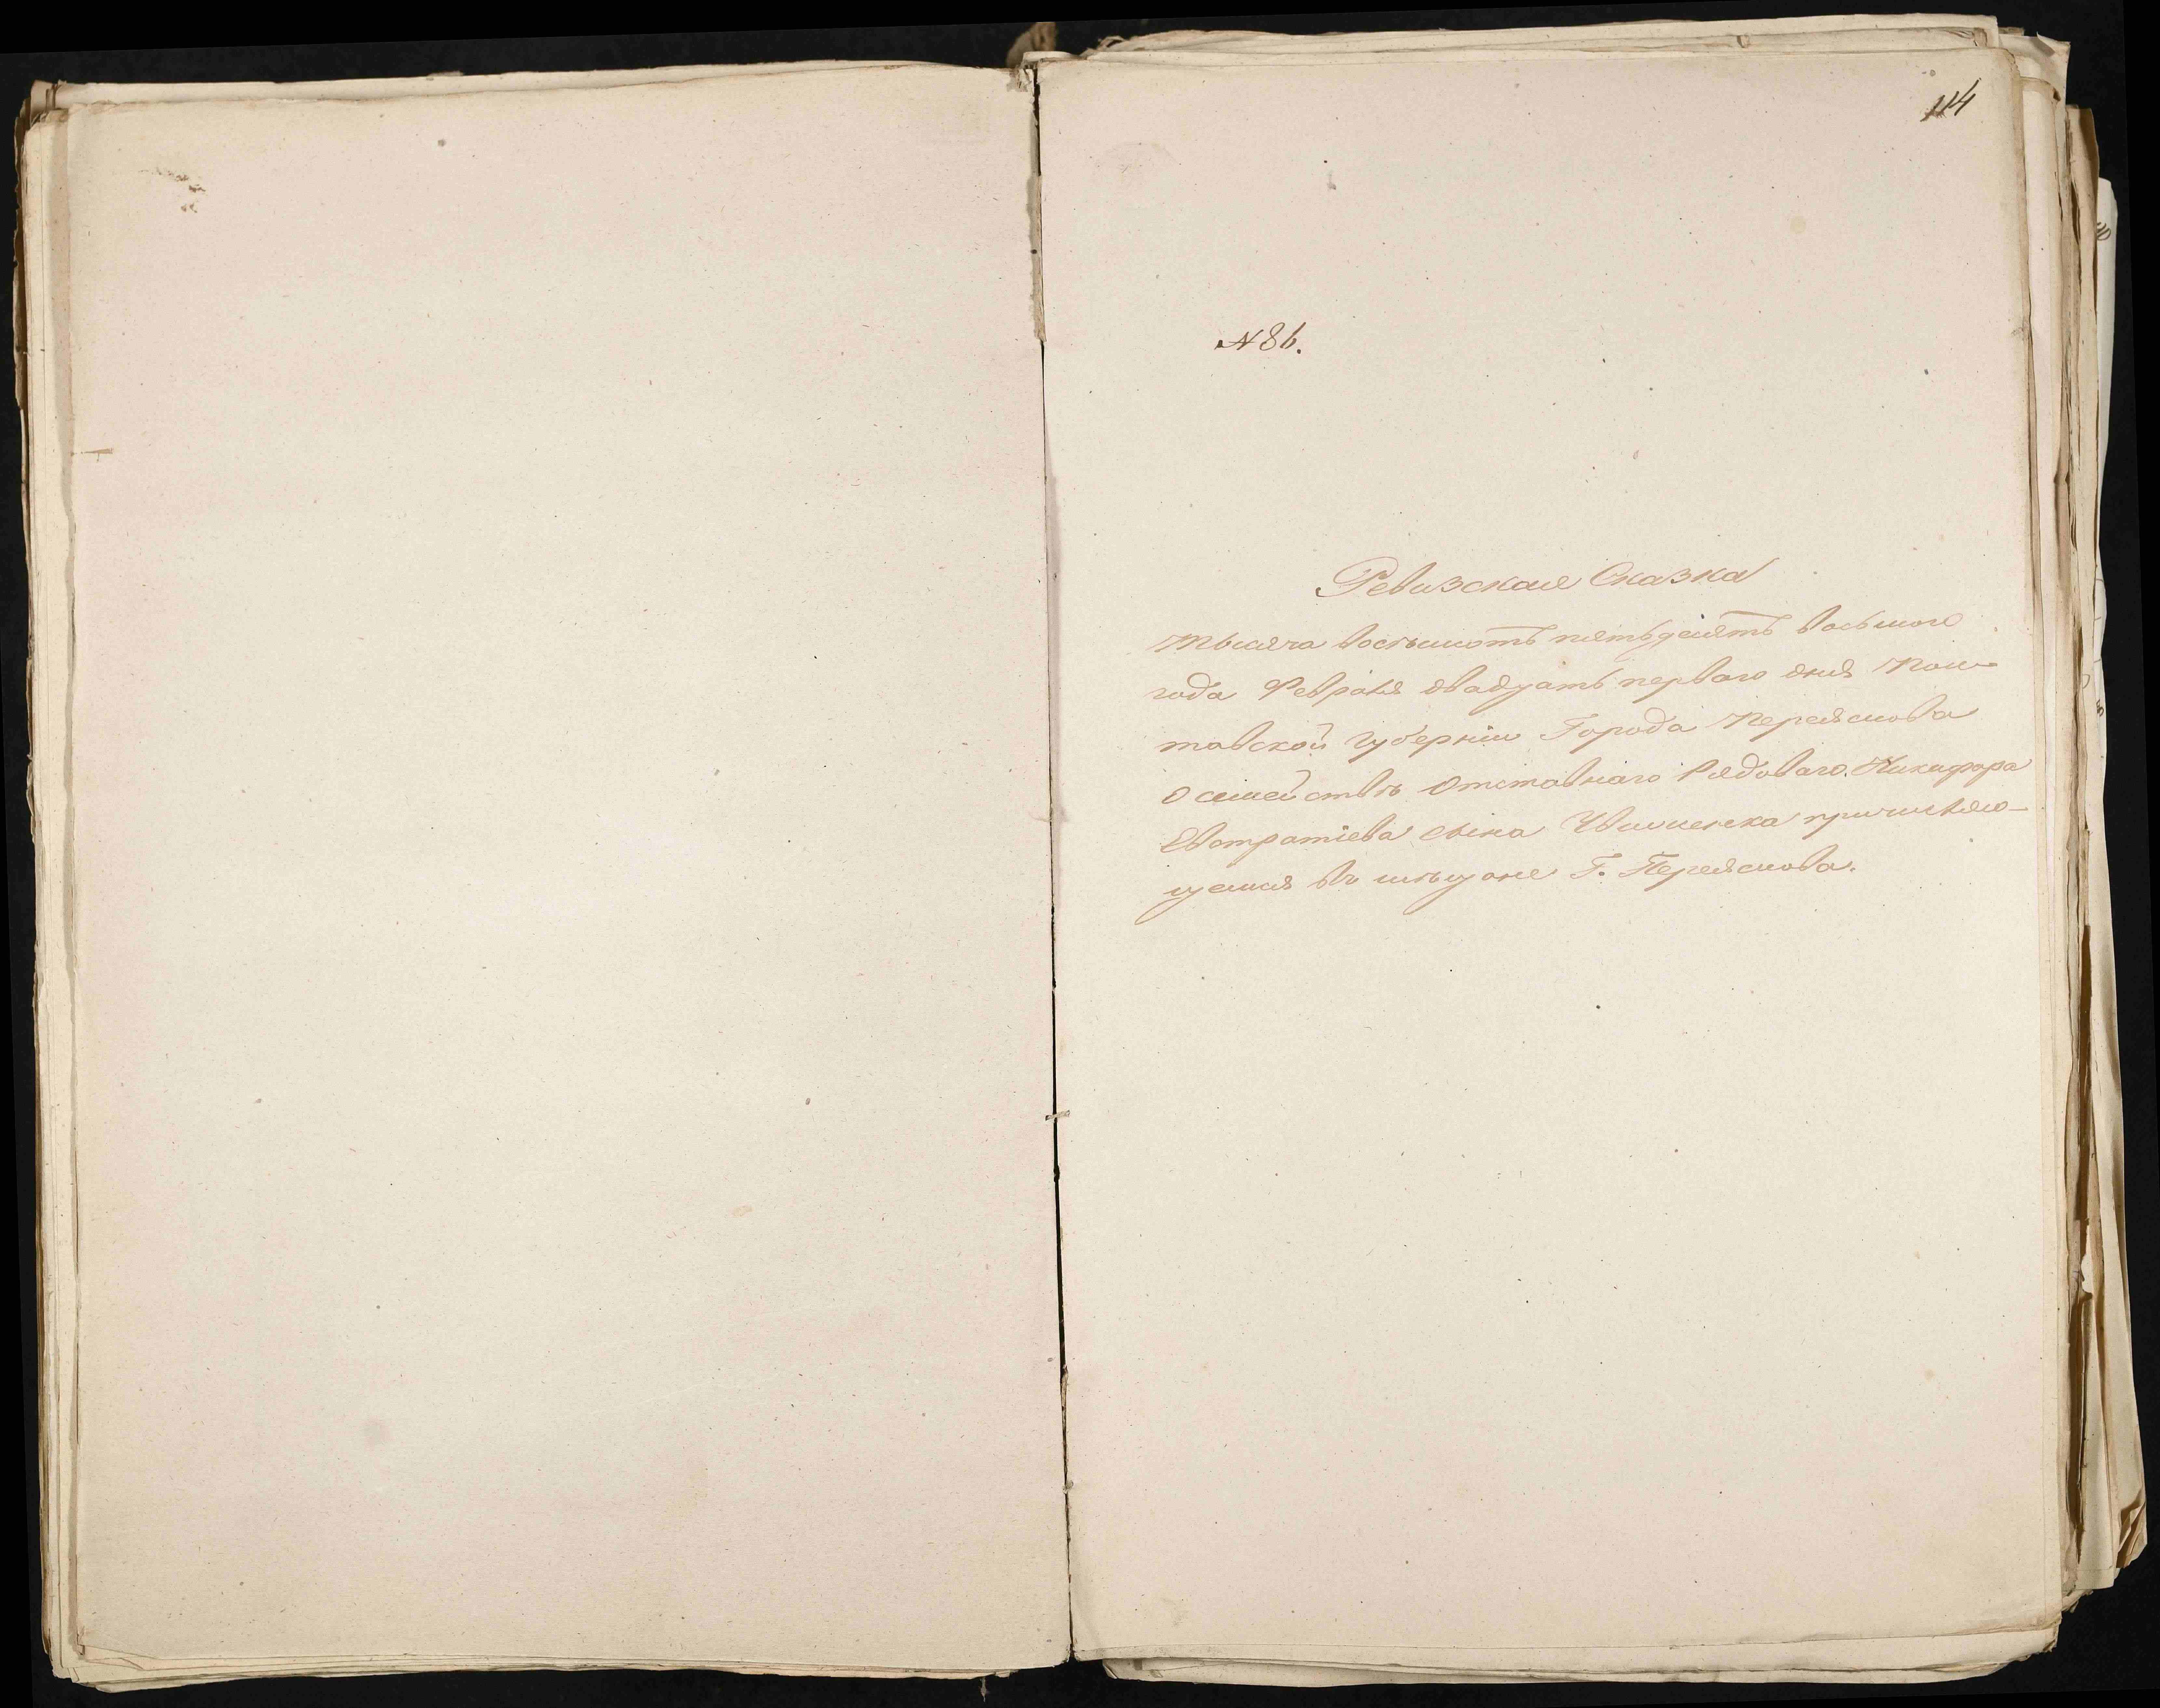 114
№ 86.
Ревизская Сказка
тысяча восѣмсотъ пятьдесятъ восьмого
года Февраля двадцать перваго дня Пол-
тавской губерніи Города Переяслова
о семействѣ отставнаго Рядоваго Никифора
Евстратіева сына причисляю-
щемся въ мѣщане Г. Переяслова.